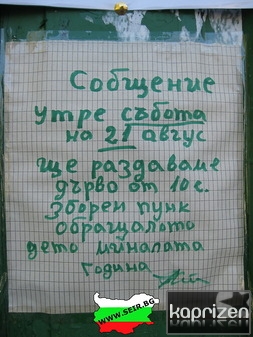 Собщение
утре събота
на 21 авгус
ще раздаваме
дърво от 10 г.
зборен пунк
обращалото
дето миналата
година
www.SEIR.BG
kaprizen